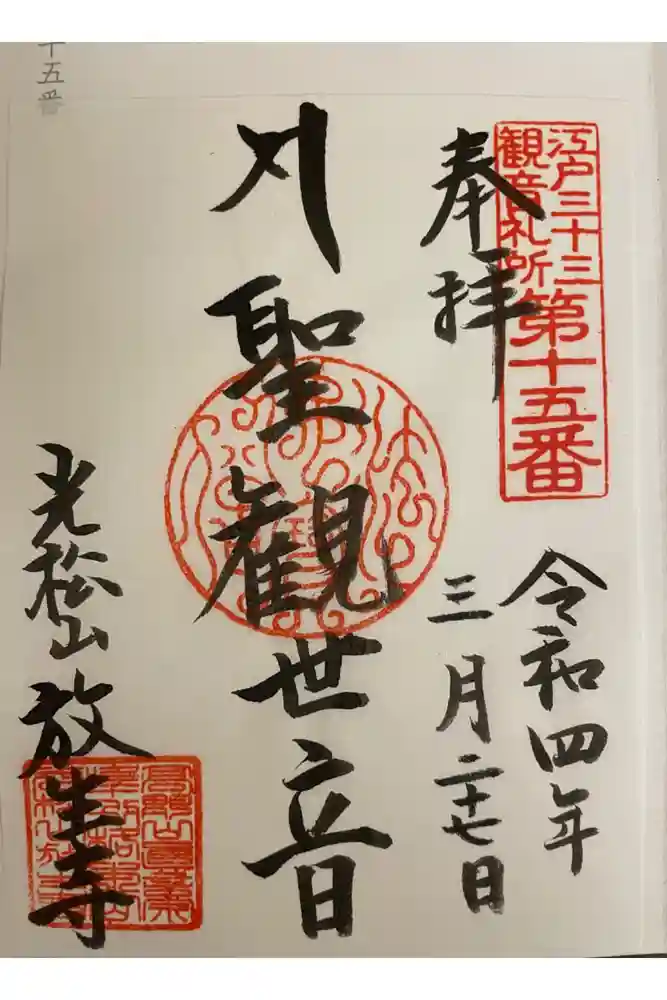 江戸三十三
観音札所
第十五番
奉拝
令和四年
三月二十七日
聖観世音
光松山
放生寺
十五番